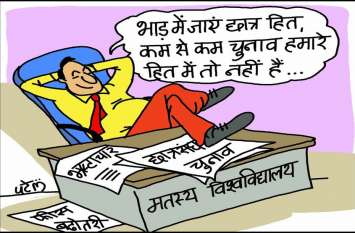 भाड़ में जाएं छात्र हित,
कम से कम चुनाव हमारे
हित में तो नहीं हैं ...
भ्रष्टाचार
छात्रसंघ
चुनाव
पटेल
मतस्य विश्वविद्यालय
फीस
बढोतरी